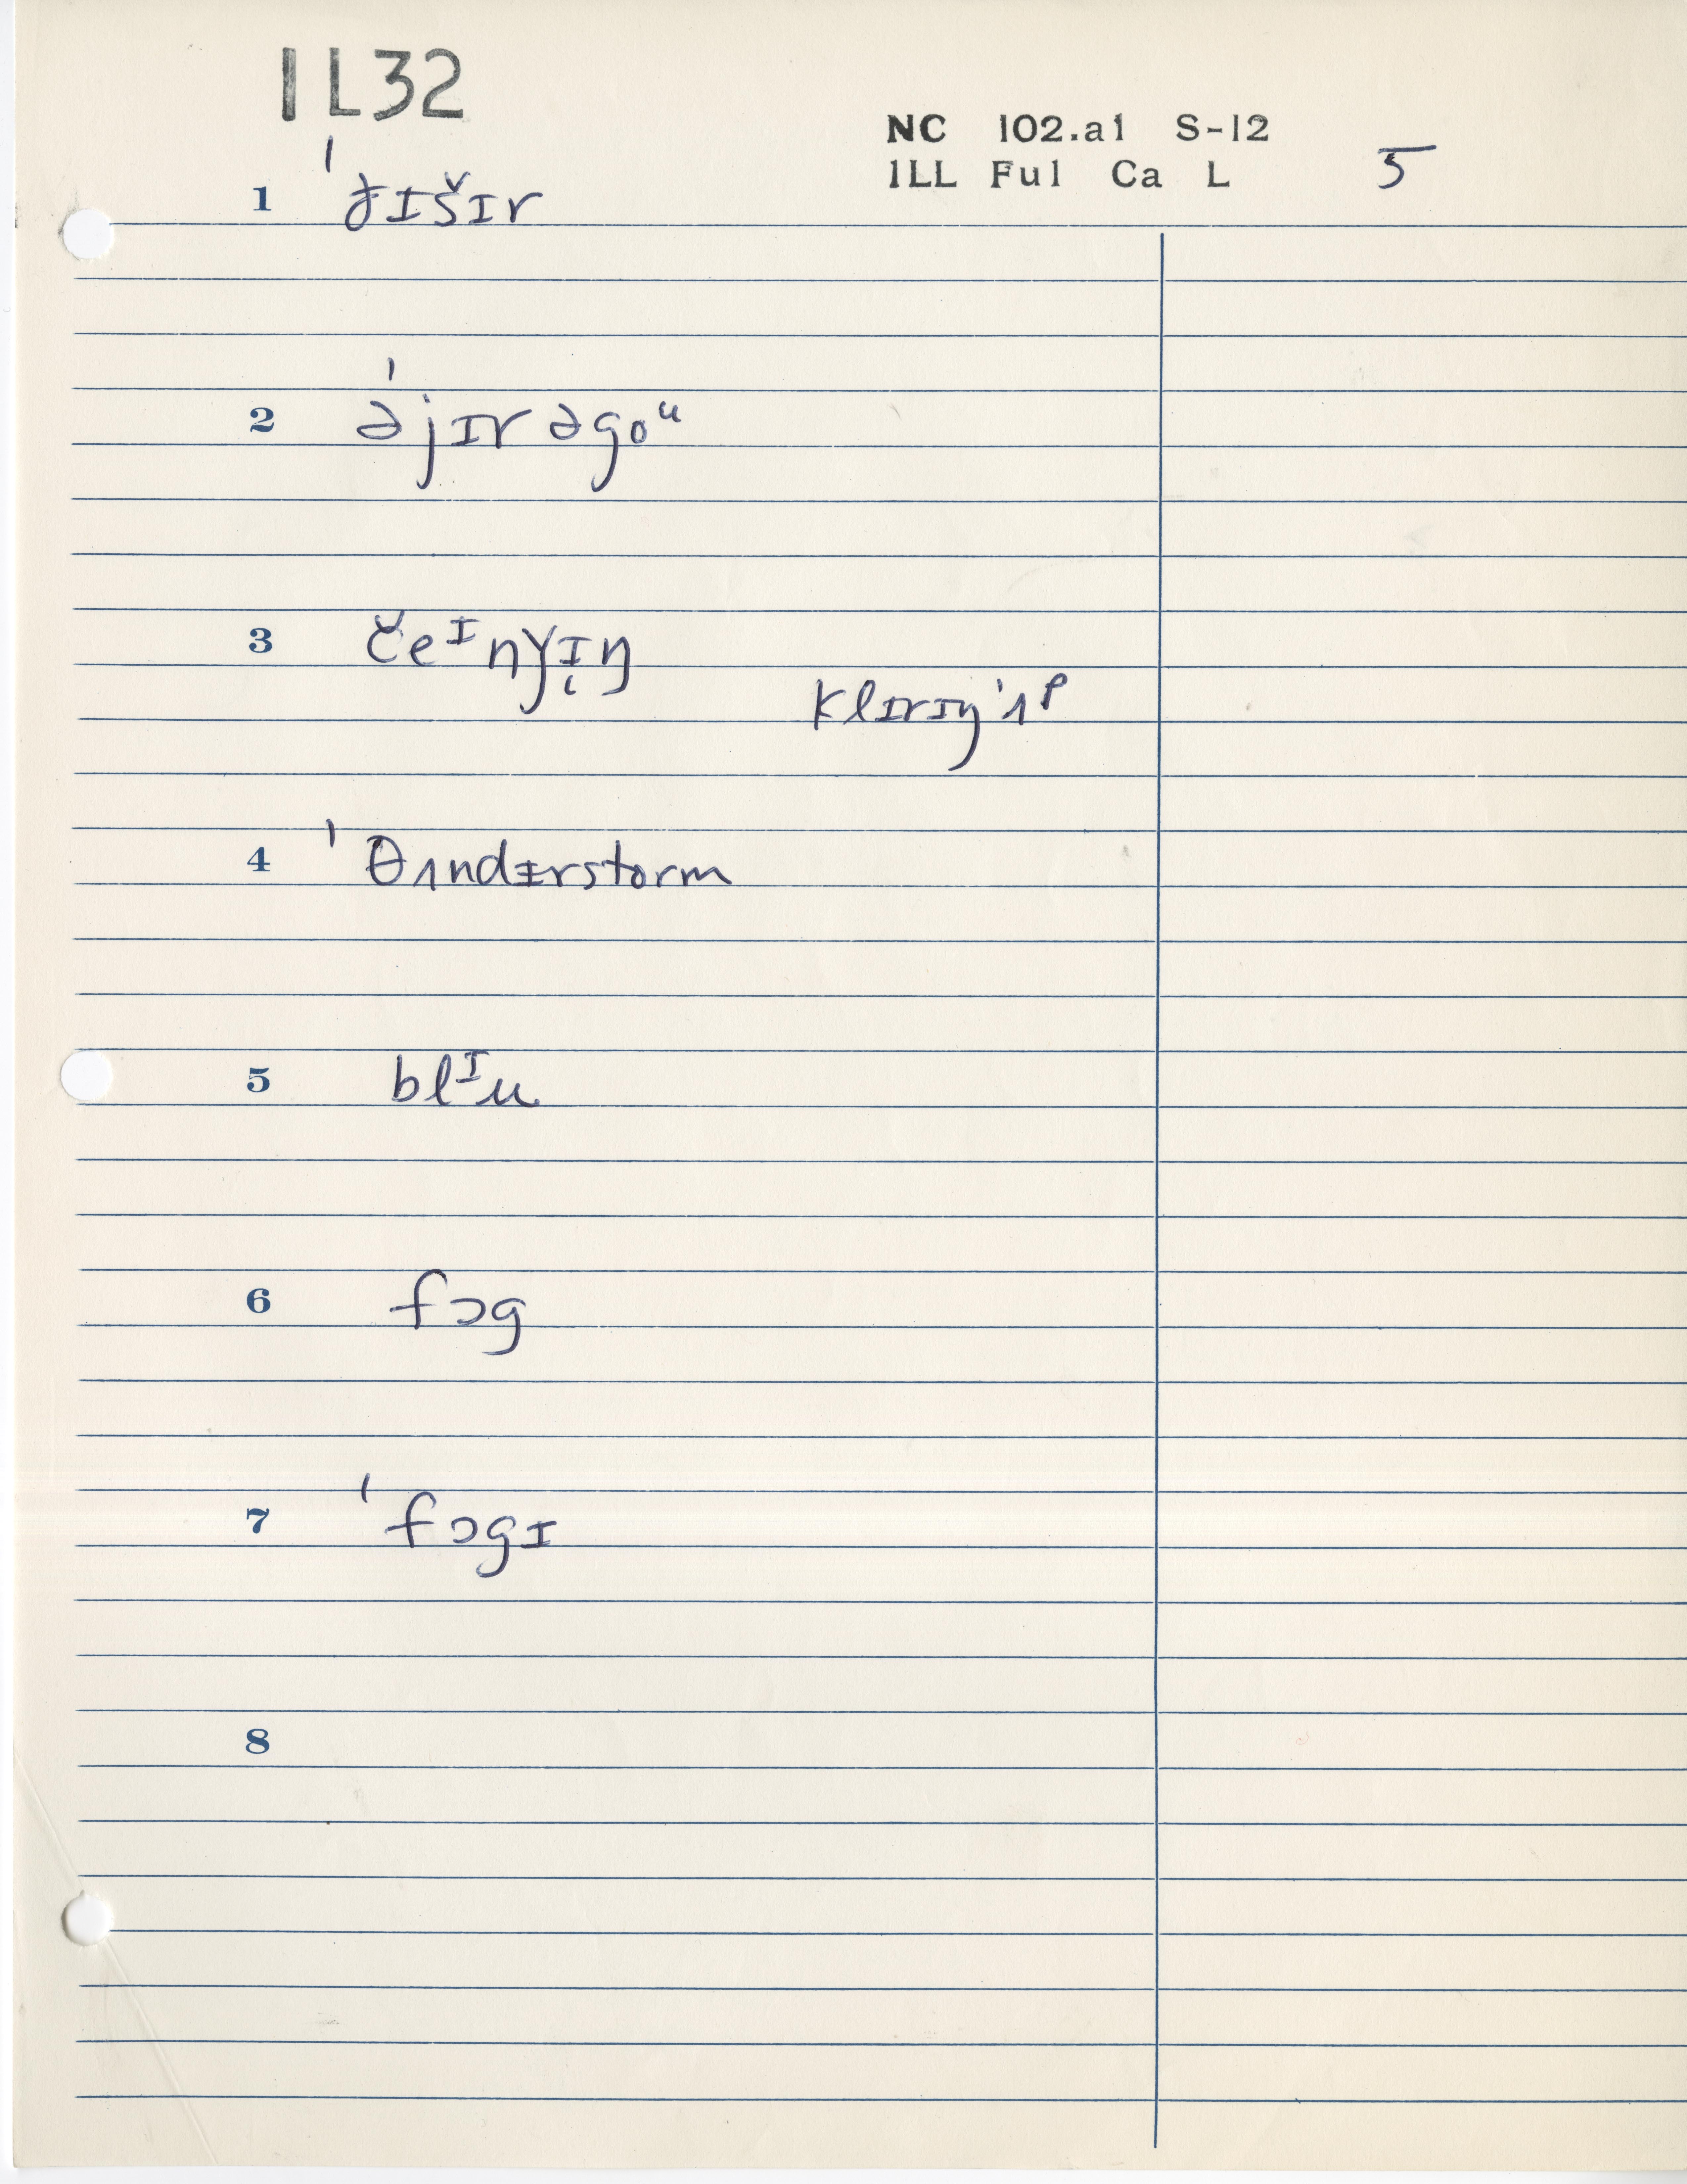 IL32
NC 102.a1 S-12
ILL Ful Ca L 5
1 ˈɟɪšɪr
2 ˈəjɪr əgoᵘ
3 čeᴵnɣɪ̨ŋ
klɪrɪŋ'ʌᵖ
4 ˈθʌndɪrstorm
5 blᴵu
6 fɔg
7 ˈfɔgɪ
8